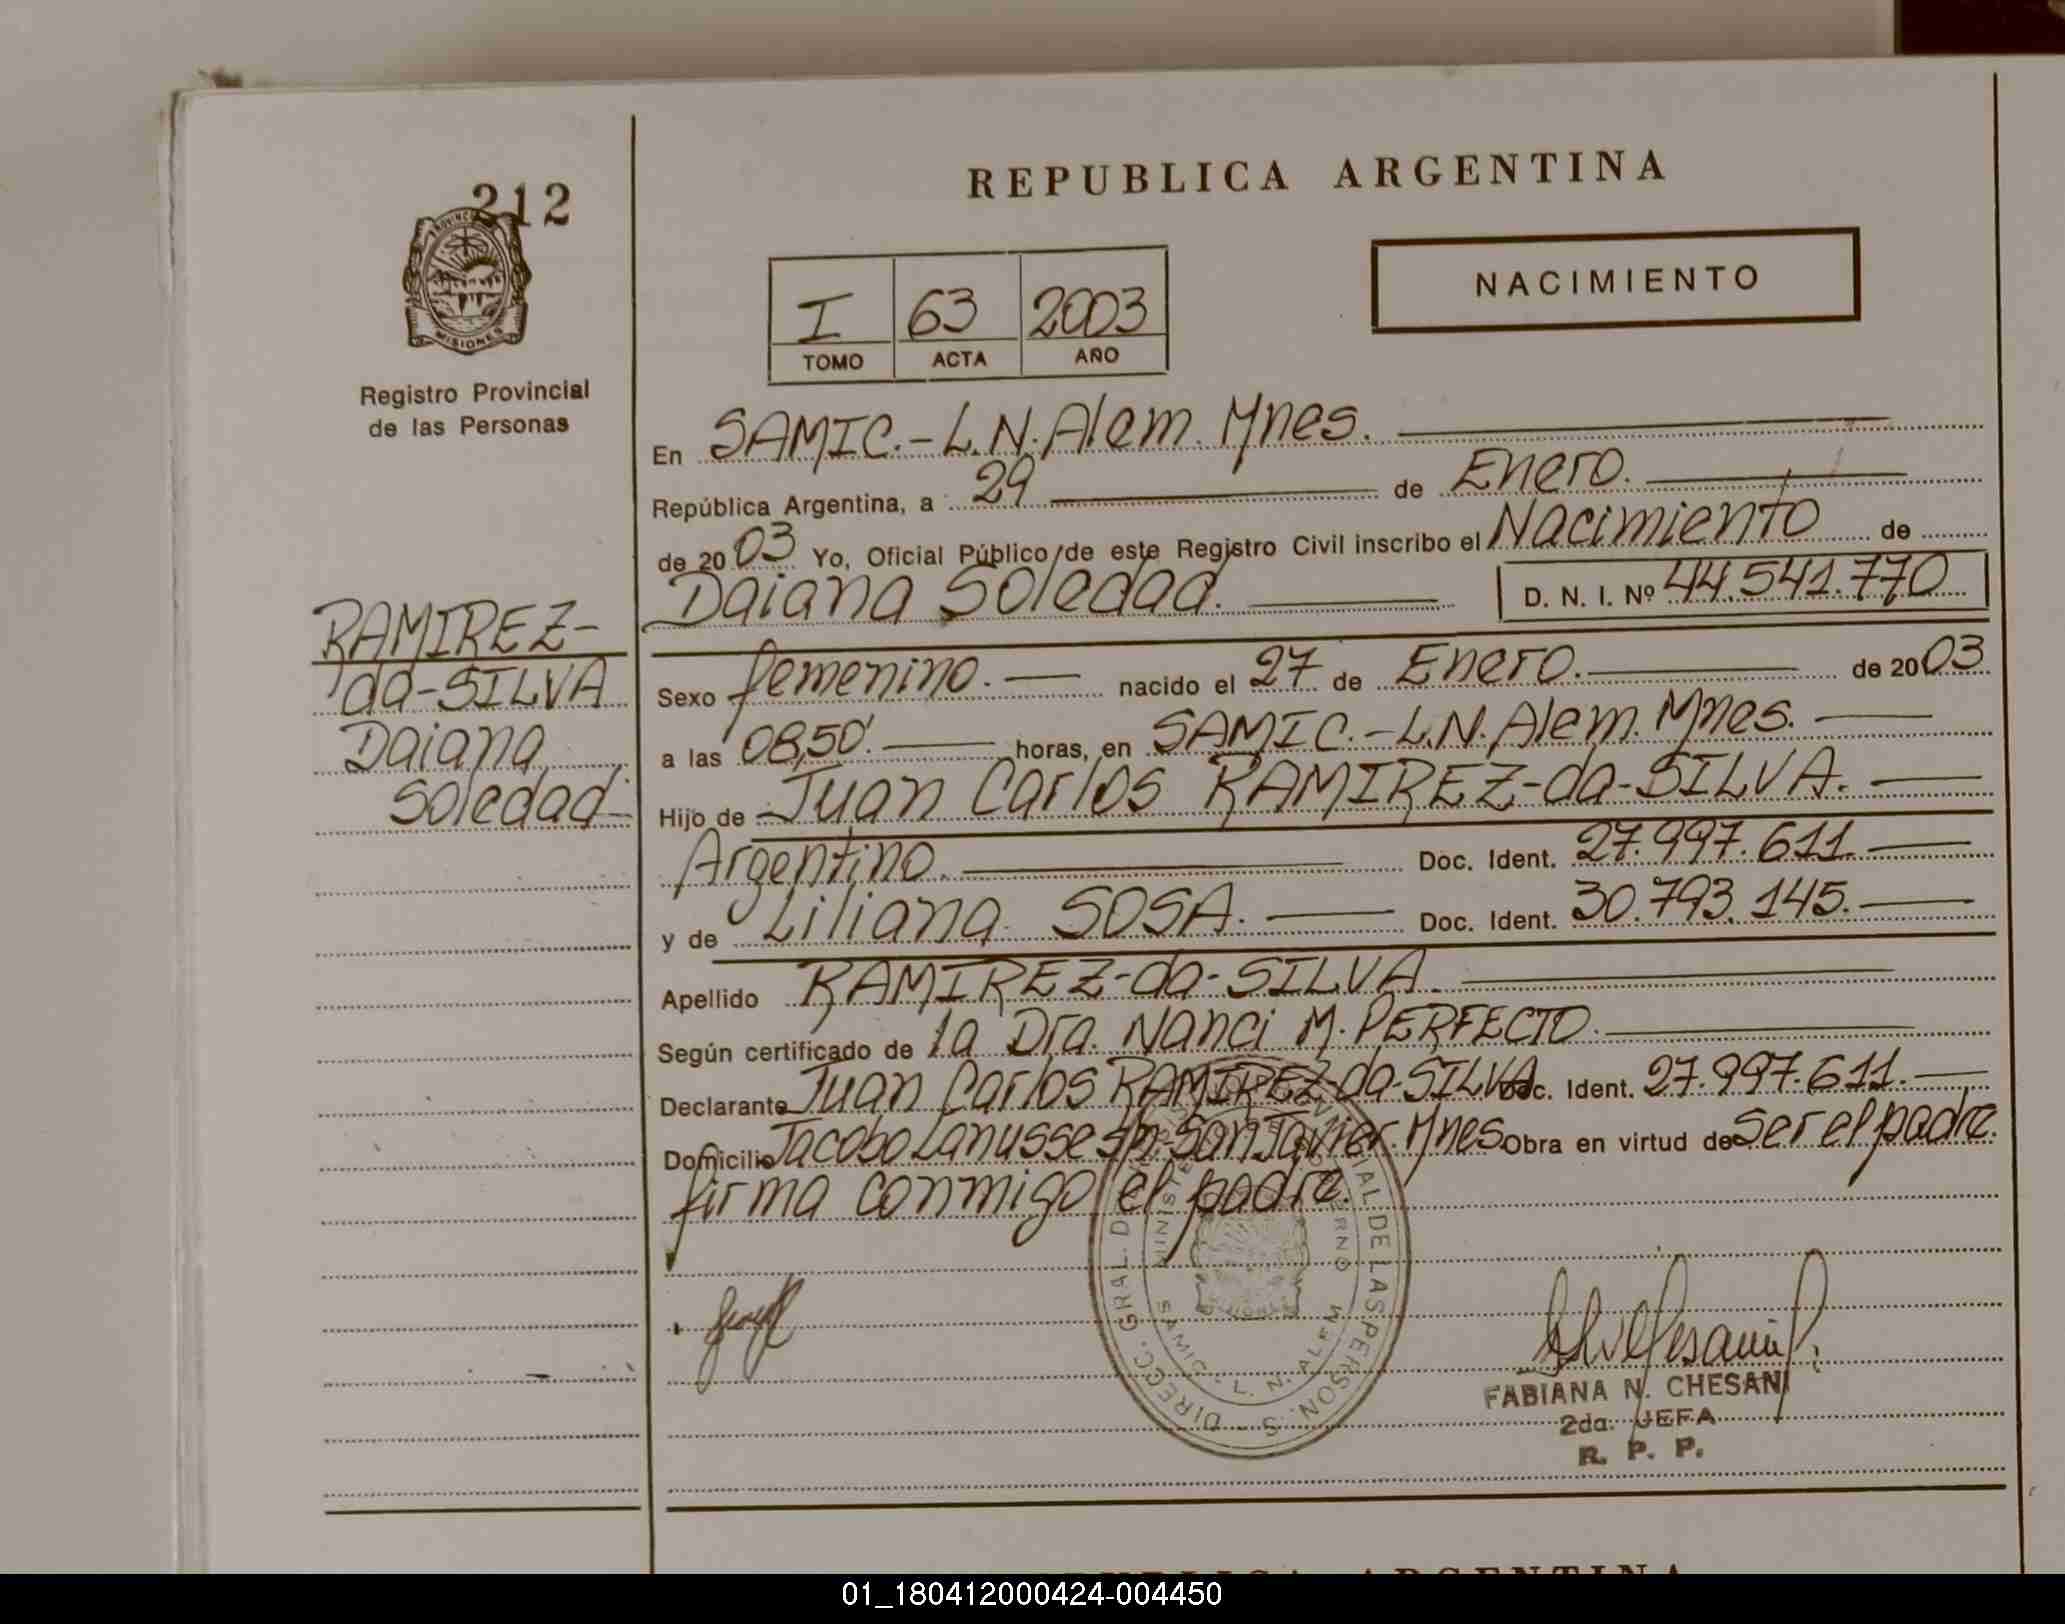 REPUBLICA ARGENTINA
212
PROVINCIA
MISIONES
Registro Provincial
de las Personas
NACIMIENTO
I 63 2003
TOMO ACTA AÑO
En SAMIC.-L.N.Alem. Mnes.
República Argentina, a 29 de Enero.
de 2003 Yo, Oficial Público de este Registro Civil inscribo el Nacimiento de
Daiana Soledad. D. N. I. Nº 44.541.770
RAMIREZ-
da-SILVA
Daiana
Soledad
Sexo femenino. nacido el 27 de Enero. de 2003
a las 08,50'. horas, en SAMIC.-L.N.Alem. Mnes.
Hijo de Juan Carlos RAMIREZ-da-SILVA.
Argentino. Doc. Ident. 27.997.611.
y de Liliana SOSA. Doc. Ident. 30.793.145.
Apellido RAMIREZ-da-SILVA.
Según certificado de la Dra. Nanci M. PERFECTO.
Declarante Juan Carlos RAMIREZ-da-SILVA Doc. Ident. 27.997.611.
Domicilio Jacobo Lanusse s/n-San Javier. Mnes Obra en virtud de Ser el padre.
firma conmigo el padre.
SAMIC. L. N. ALEM
FABIANA N. CHESANI
2da. JEFA
R. P. P.
REPUBLICA ARGENTINA
01_180412000424-004450